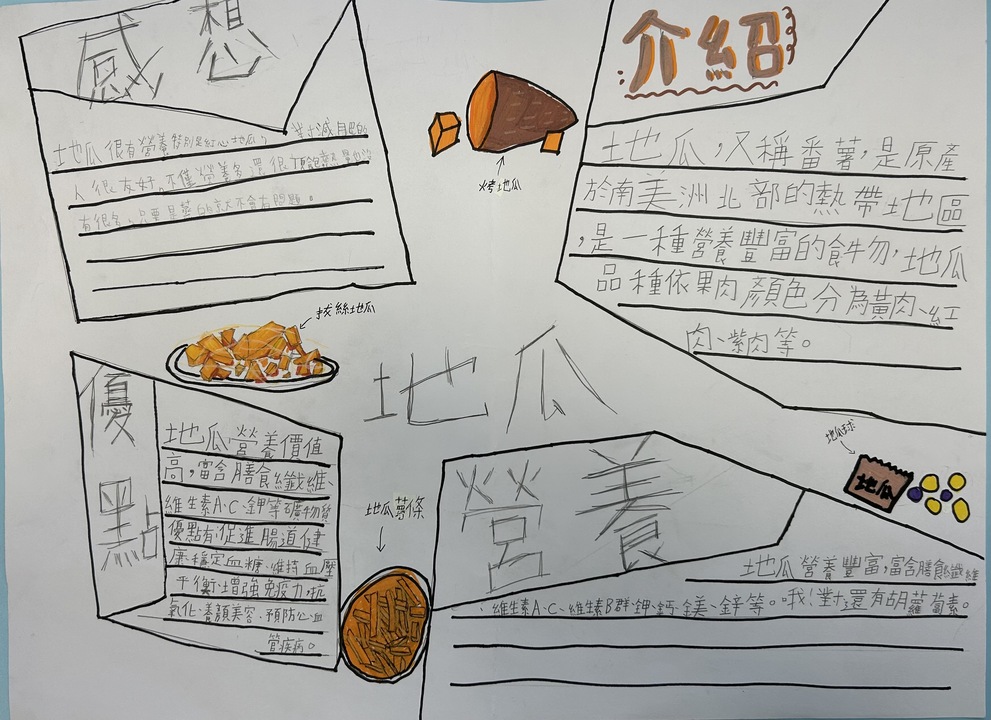 感想
地瓜很有營養特別是紅心地瓜,對減月巴的
人很友好,不僅營養多還很頂飽
有很多,只要是蒸的就大不會有問題。
烤地瓜
介紹
地瓜,又稱番薯,是原產
於南美洲北部的熱帶地區
,是一種營養豐富的食物,地瓜
品種依果肉顏色分為黃肉、紅
肉、紫肉等。
拔絲地瓜
地瓜
優點
地瓜營養價值
高,富含膳食纖維、
維生素A、C、鉀等礦物質
優點有:促進腸道健
康、穩定血糖、維持血壓
平衡、增強免疫力、抗
氧化、養顏美容、預防心血
管疾病。
地瓜薯條
地瓜球
地瓜
營養
地瓜營養豐富,富含膳食纖維
、維生素A、C、維生素B群、鉀、鈣、鎂、鋅等。我!對!還有胡蘿蔔素。